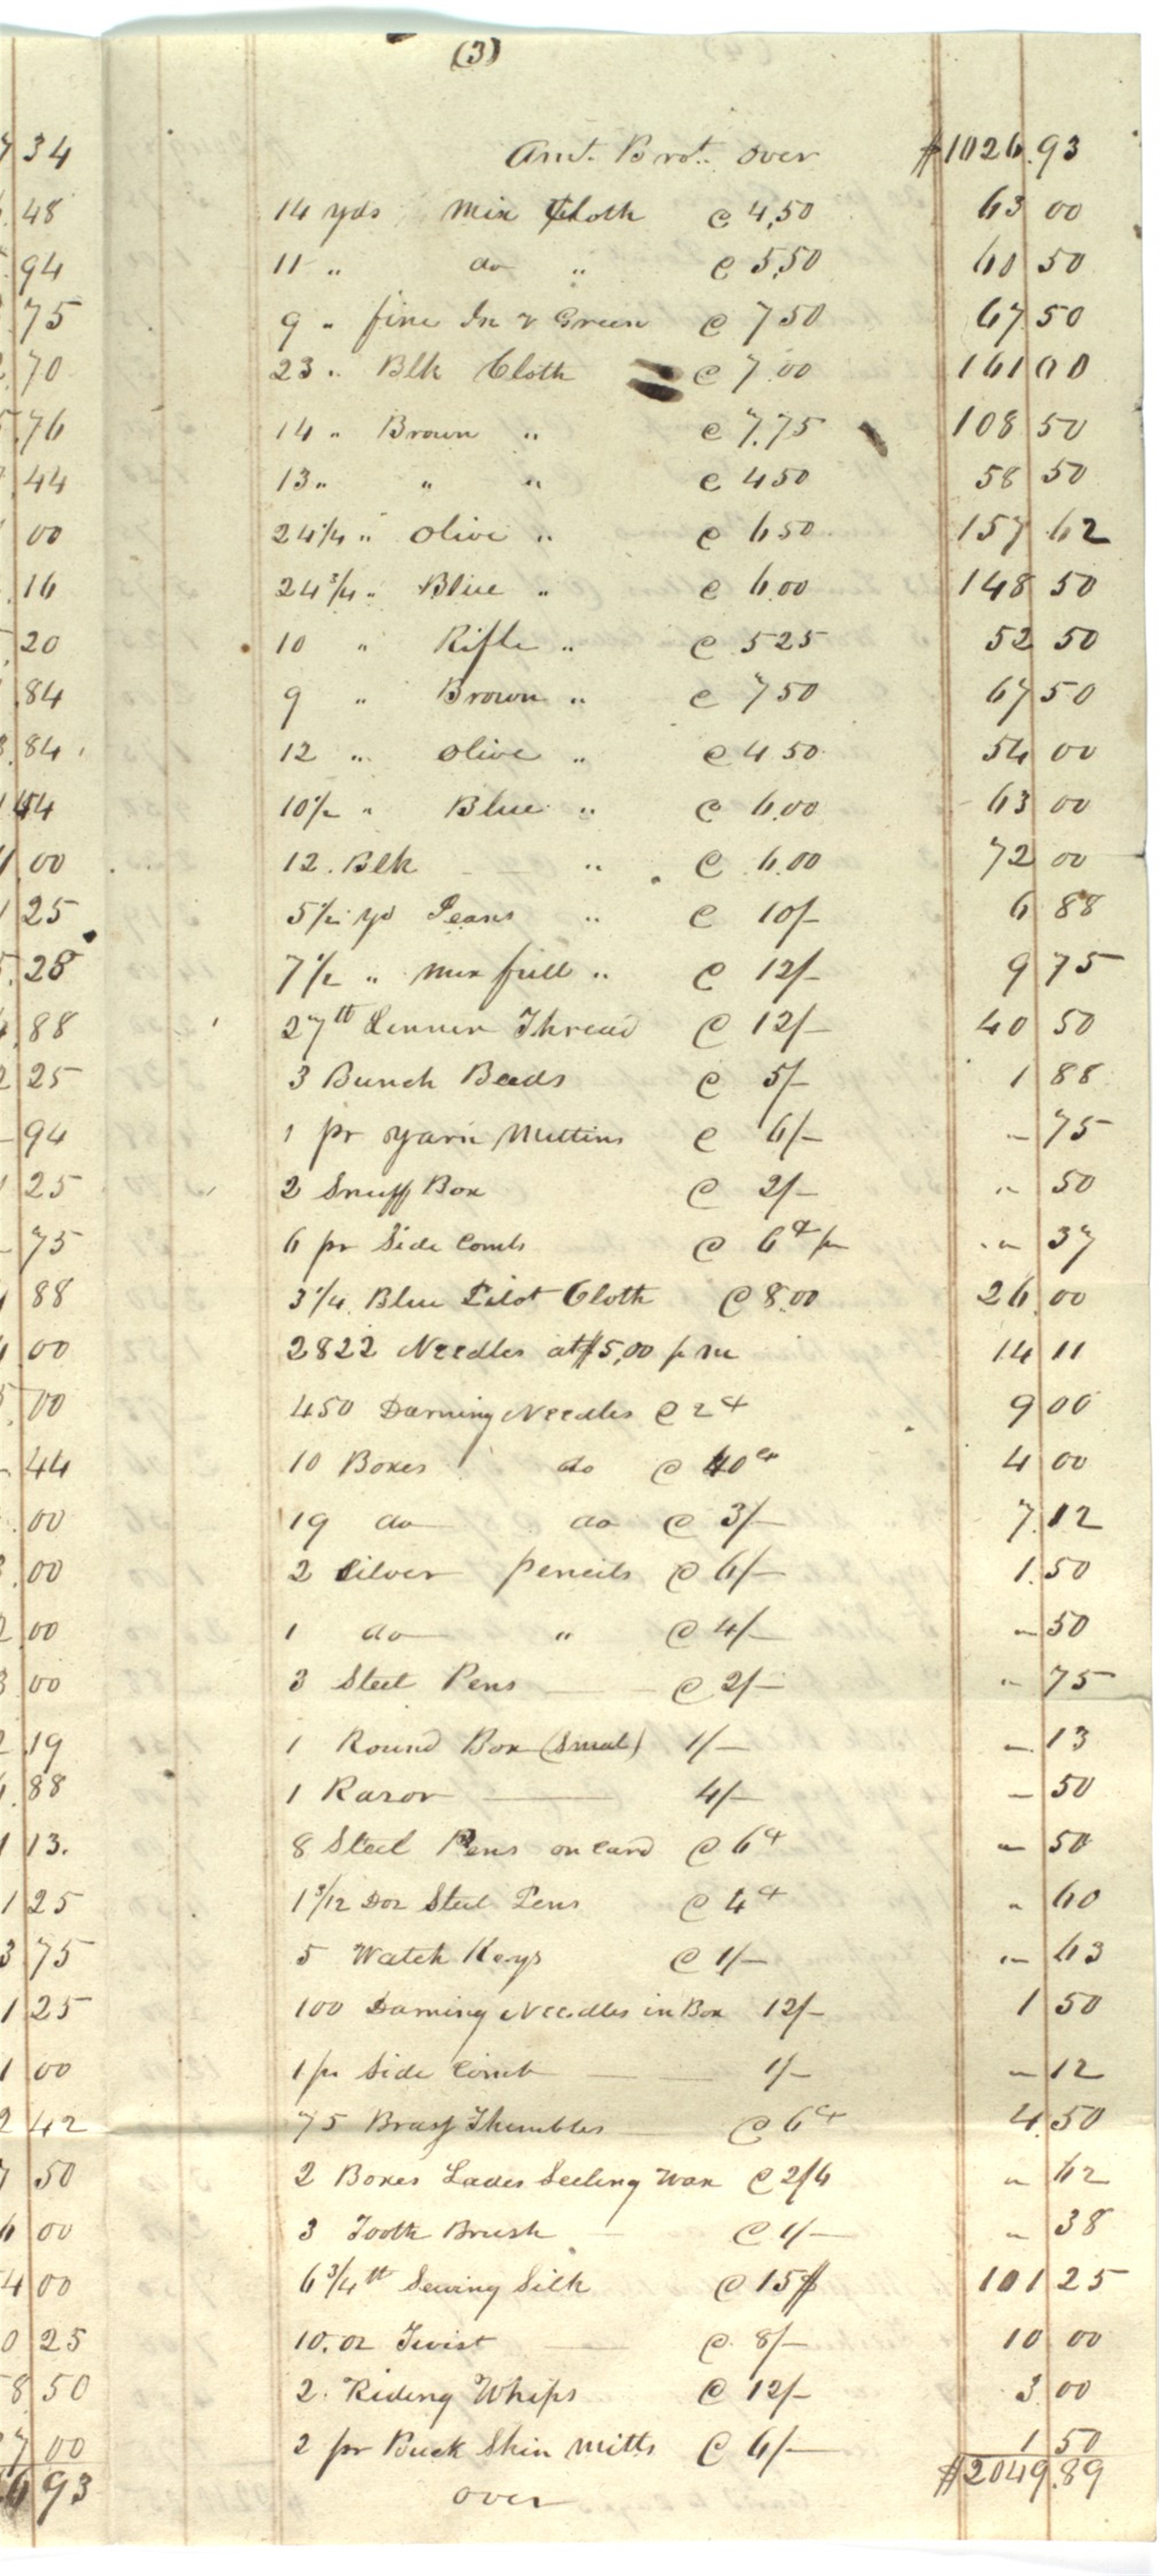 (3)
Amt. Brot. over $1026.93
14 yds Mix Cloth @ 4,50 63 00
11 " do " @ 5,50 60 50
9 " fine In v Green @ 7 50 67.50
23 " Blk Cloth @ 7.00 161 00
14 " Brown " @ 7.75 108 50
13 " " " @ 4 50 58 50
24 1/4 " Olive " @ 6 50 157.62
24 3/4 " Blue " @ 6.00 148 50
10 " Rifle " @ 5 25 52 50
9 " Brown " @ 7 50 67 50
12 " Olive " @ 4 50 54 00
10 1/2 " Blue " @ 6.00 63 00
12. Blk " @ 6.00 72 00
5 1/2 yd Jeans " @ 10/- 6 88
7 1/2 " mix full " @ 12/- 9 75
27 lb Linnen Thread @ 12/- 40 50
3 Bunch Beads @ 5/- 1 88
1 pr yarn Mittins @ 6/- " 75
2 Snuff Box @ 2/- " 50
6 pr Side Combs @ 6 ct pr " 37
3 1/4 Blue Pilot Cloth @ 8.00 26.00
2822 Needles at $5,00 p m 14 11
450 Darning Needles @ 2 ct 9 00
10 Boxes do @ 40 ct 4 00
19 do do @ 3/- 7.12
2 Silver pencils @ 6/- 1.50
1 do " @ 4/- " 50
3 Steel Pens @ 2/- " 75
1 Round Box (Small) 1/- " 13
1 Razor 4/- - 50
8 Steel Pens on Card @ 6 ct " 50
1 3/12 Doz Steel Pens @ 4 ct " 60
5 Watch Keys @ 1/- " 63
100 Darning Needles in Box 12/- 1 50
1 pr Side Comb 1/- " 12
75 Brass Thimbles @ 6 ct 4.50
2 Boxes Ladies Seeling Wax @ 2/6 " 62
3 Tooth Brush @ 1/- " 38
6 3/4 lb Sewing Silk @ 15$ 101 25
10. oz Twist @ 8/- 10 00
2. Riding Whips @ 12/- 3.00
2 pr Buck Skin Mitts @ 6/- 1 50
over $2049.89
34
48
94
75
70
76
44
00
16
20
84
84
44
00
25
28
88
25
94
25
75
88
00
00
44
00
00
00
00
19
88
13.
25
75
25
00
42
50
00
00
25
50
00
93